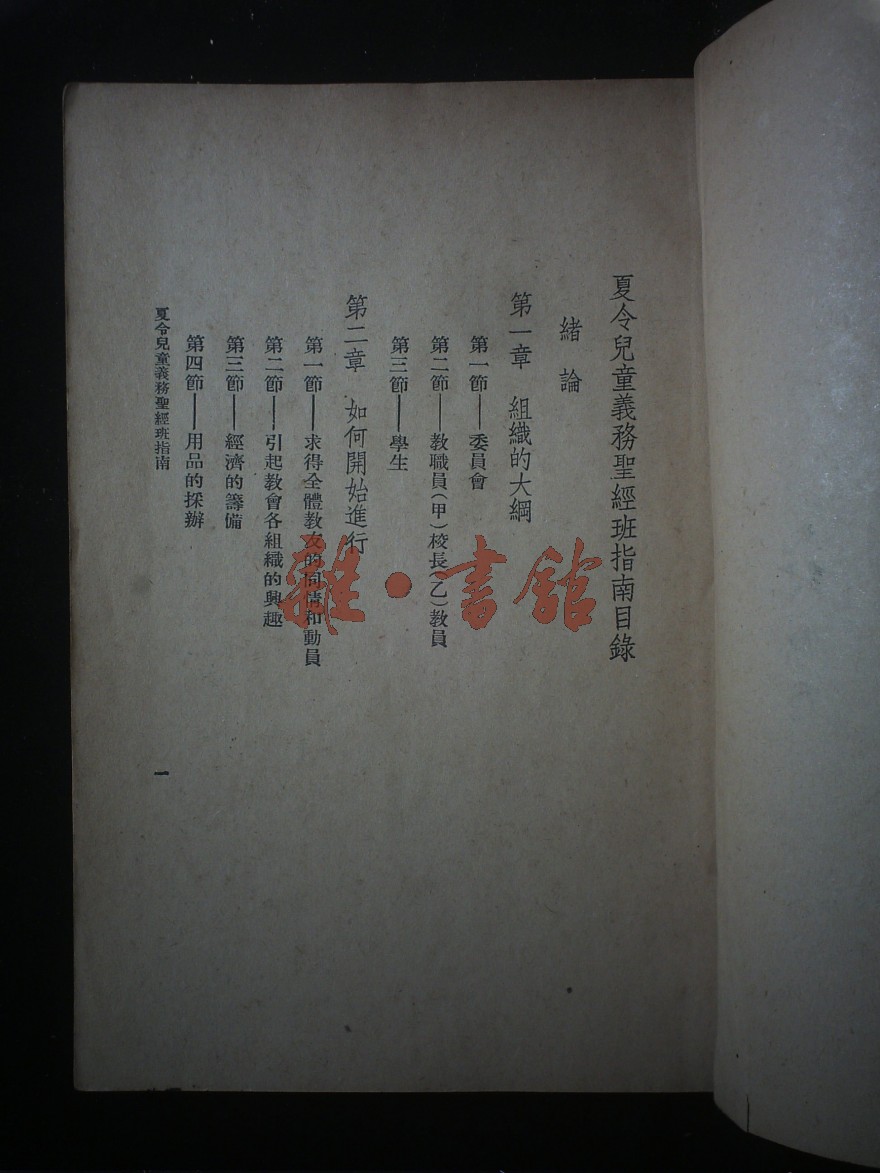 夏令兒童義務聖經班指南目錄
緒論
第一章 組織的大綱
第一節——委員會
第二節——教職員(甲)校長(乙)教員
第三節——學生
第二章 如何開始進行
第一節——求得全體教友的同情和動員
第二節——引起教會各組織的興趣
第三節——經濟的籌備
第四節——用品的採辦
夏令兒童義務聖經班指南
一
雜·書館